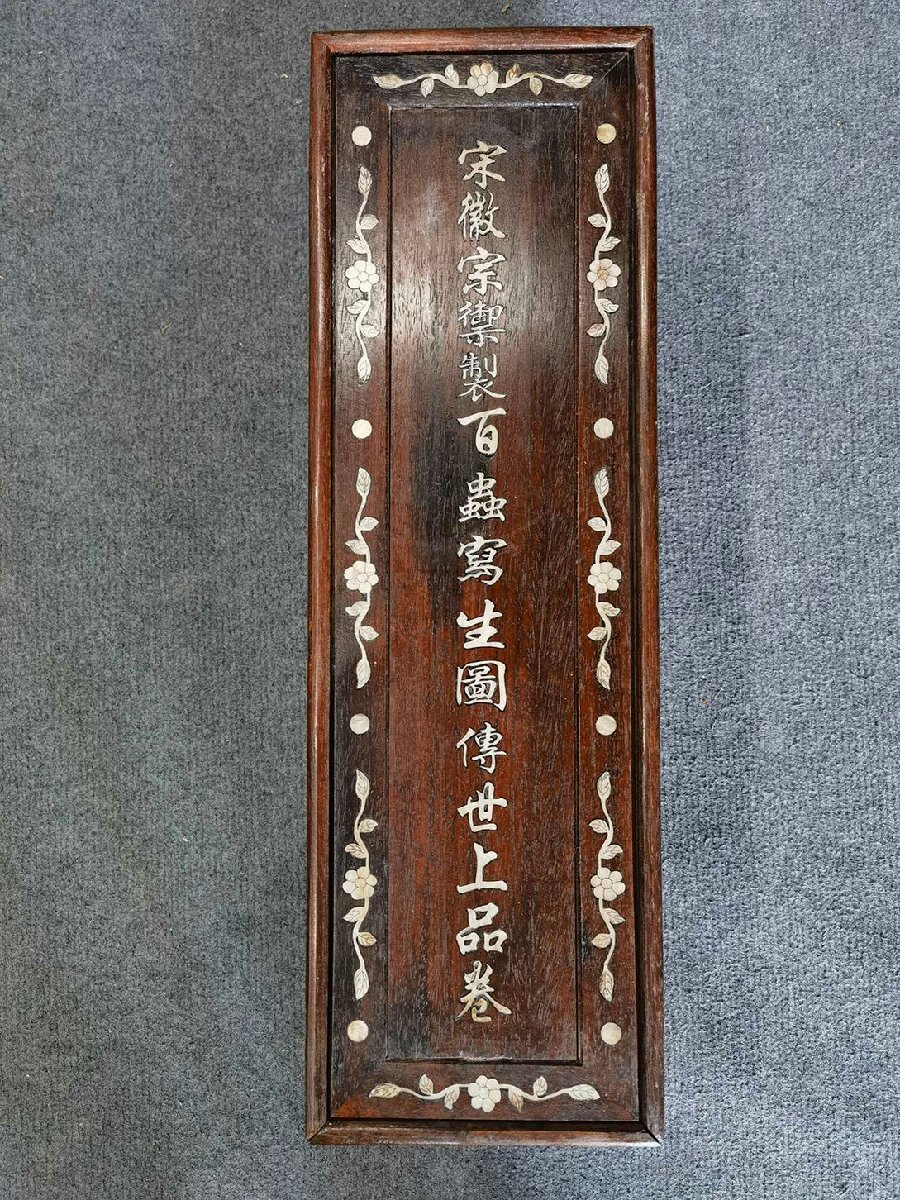 宋徽宗禦製百蟲寫生圖傳世上品卷